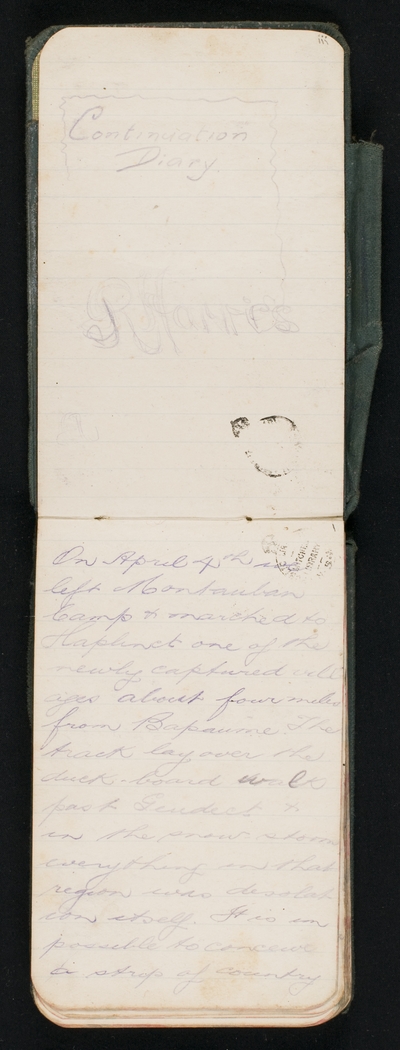 Continuation
Diary
On April 4th we
left Montauban
Camp & marched to
Haplinct one of the
newly captured vill
ages about four miles
from Bapaume. The
track lay over the
duck-board walk
past Geudect &
in the snow storm
everything in that
region was desolat
ion itself. It is im
possible to conceive
a strip of country